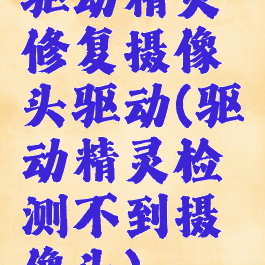 驱动精灵
修复摄像
头驱动(驱
动精灵检
测不到摄
像头)